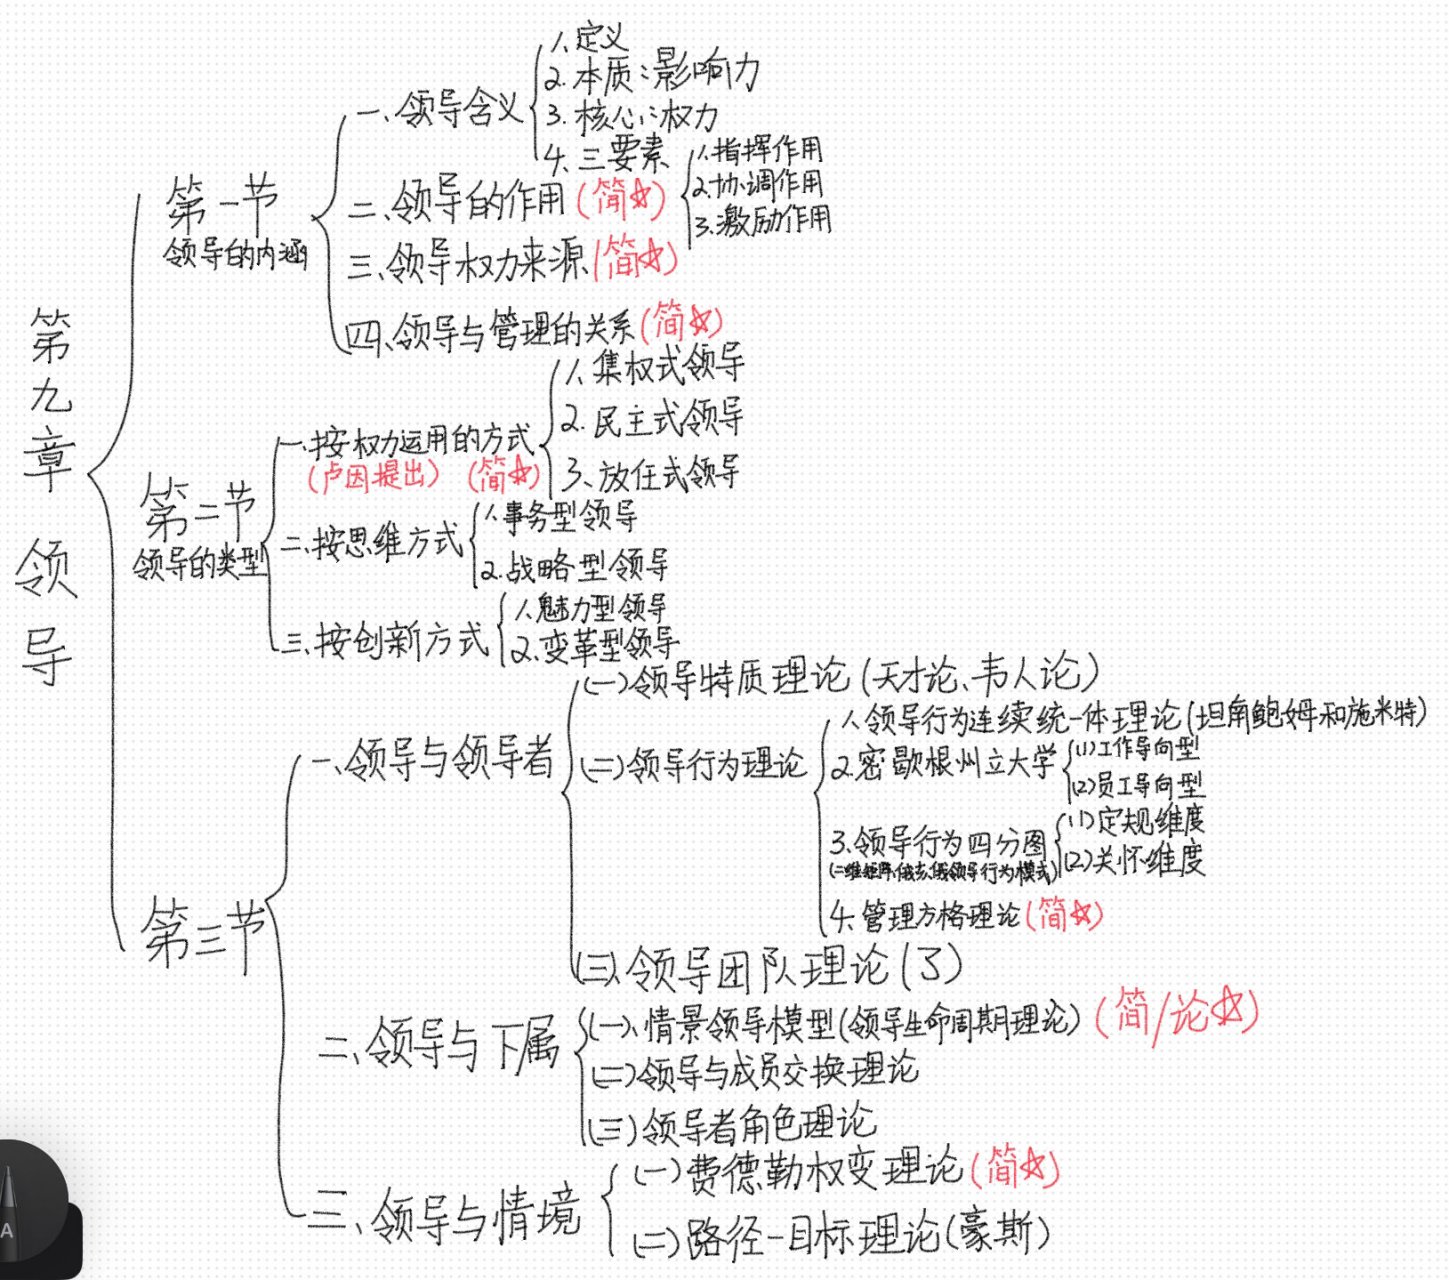 第九章 领导
第一节
领导的内涵
一、领导含义
1、定义
2.本质:影响力
3.核心:权力
4、三要素
二、领导的作用(简☆)
1.指挥作用
2.协调作用
3.激励作用
三、领导权力来源(简☆)
四、领导与管理的关系(简☆)
第二节
领导的类型
一、按权力运用的方式
(卢因提出) (简☆)
1、集权式领导
2.民主式领导
3、放任式领导
二、按思维方式
1.事务型领导
2.战略型领导
三、按创新方式
1.魅力型领导
2.变革型领导
第三节
一、领导与领导者
(一)领导特质理论(天才论、韦人论)
(二)领导行为理论
1.领导行为连续统一体理论(坦角鲍姆和施米特)
2.密歇根州立大学
(1)工作导向型
(2)员工导向型
3.领导行为四分图
领导行为模式)
(1)定规维度
(2)关怀维度
4.管理方格理论(简☆)
(三)领导团队理论(了)
二、领导与下属
(一)、情景领导模型(领导生命周期理论) (简/论☆)
(二)领导与成员交换理论
(三)领导者角色理论
三、领导与情境
(一)费德勒权变理论(简☆)
(二)路径-目标理论(豪斯)
A